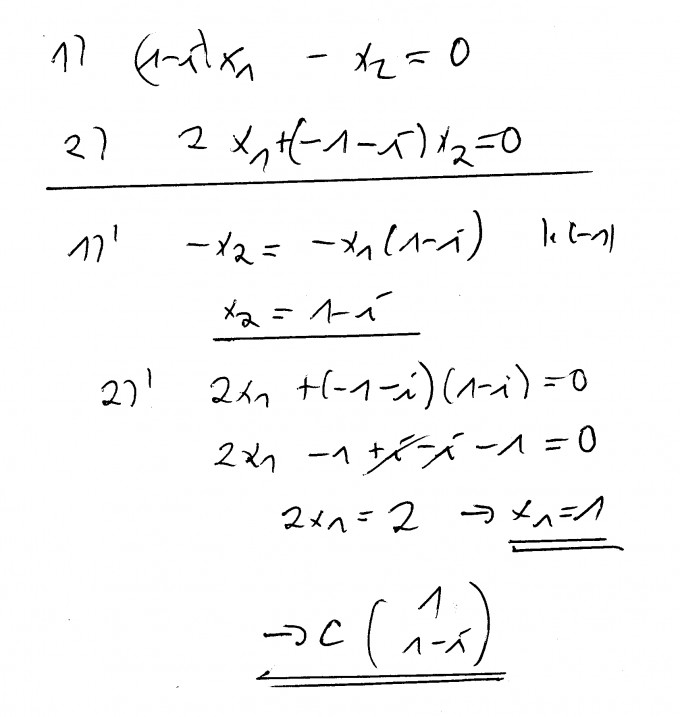 1) (1-i)x₁ - x₂ = 0
2) 2 x₁+(-1-i)x₂=0
1)' -x₂ = -x₁(1-i) |·(-1)
x₂ = 1-i
2)' 2x₁ +(-1-i)(1-i) = 0
2x₁ -1 +i-i -1 = 0
2x₁ = 2 → x₁=1
→ C ( 1
1-i )